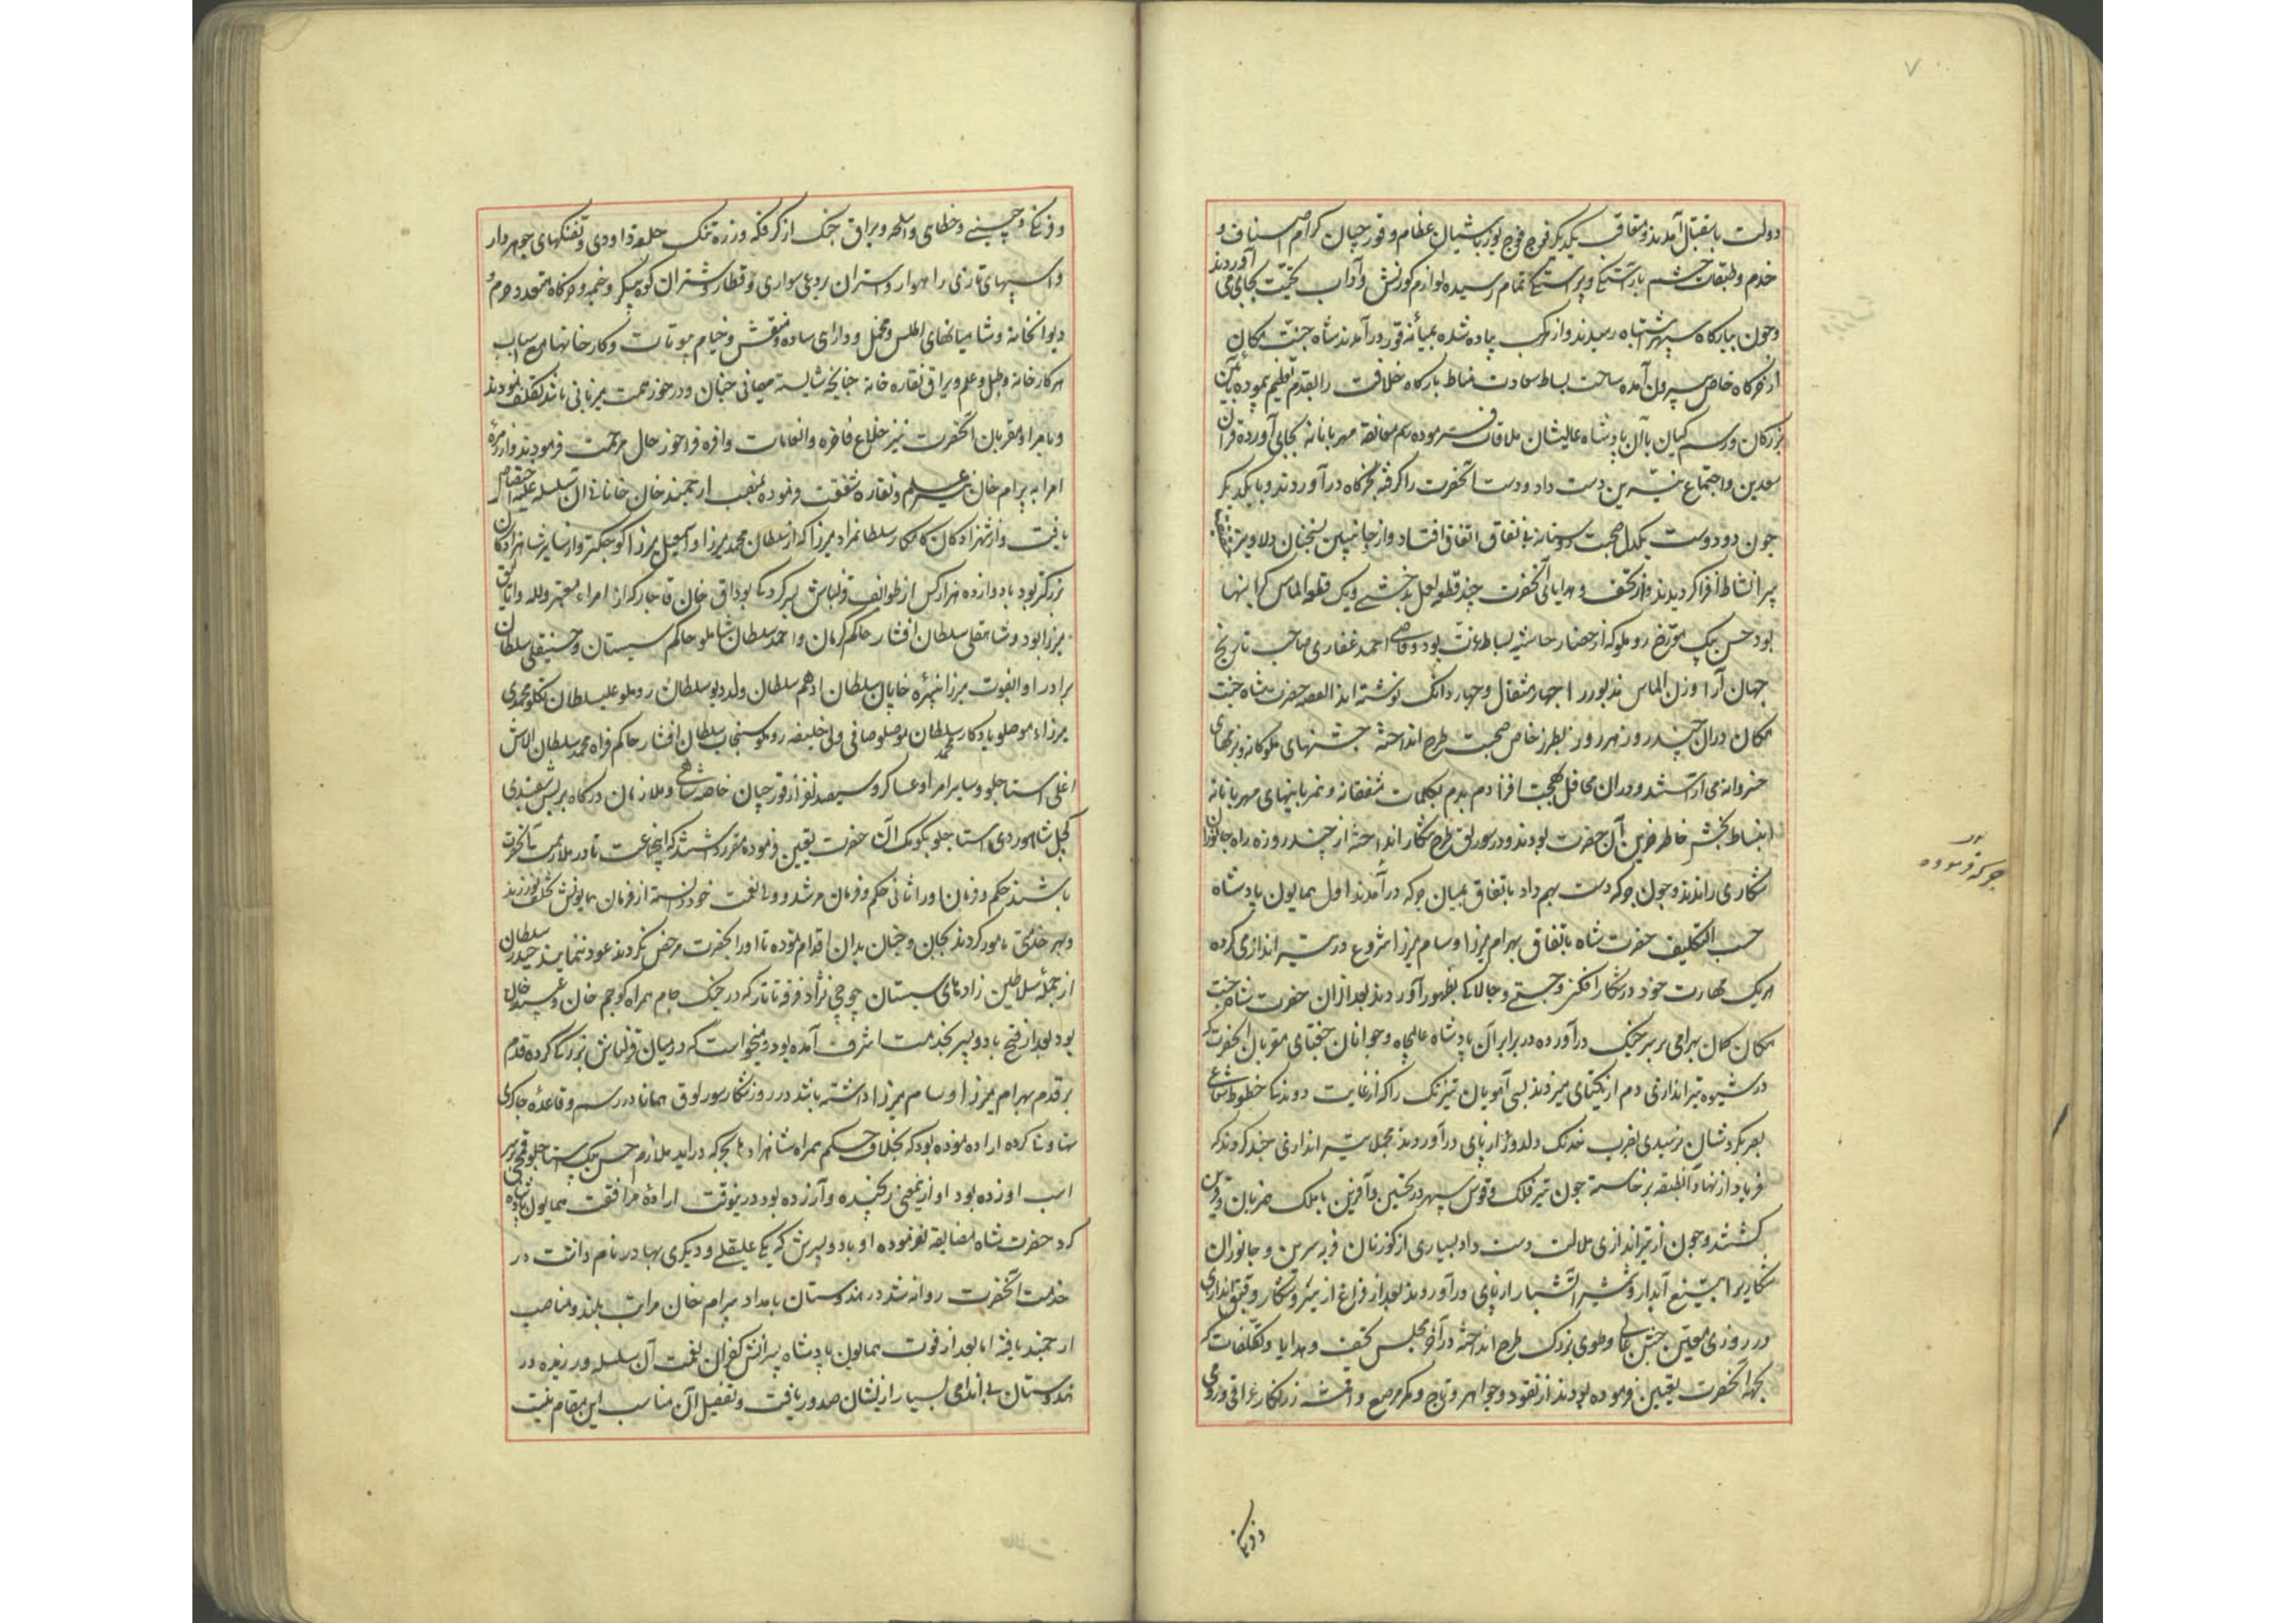 ۷
دولت باستقبال آمدند و متعاقب یکدیگر فوج فوج یوزباشیان عظام و قورچیان کرام اصناف و
خدم و طبقات حشم باراستکی و پیراستکی تمام رسیده لوازم کورنش و آداب تحیّت بجای می آوردند
و چون ببارکاه سپهر اشتباه رسیدند و از مرکب پیاده شده بمیانه قور درآمدند شاه جنّت مکان
از خرکاه خاص بیرون آمده ساحت بساط سعادت مناط بارکاه خلافت را بقدم تعظیم پیموده بآئین
بزرکان و رسم کیان با آن پادشاه عالیشان ملاقات فرموده رسم معانقه مهربانانه بجای آورده قران
سعدین و اجتماع نیّرین دست داد و دست آنحضرت را کرفته بخرکاه درآوردند و با یکدیکر
چون دو دوست یکدل صحبت دوستانه بی نفاق اتفاق افتاد و از جانبین بسخنان دلاویز
پیرا نشاط افزا کردیدند و از تحف و هدایای آنحضرت چند قطعه لعل بدخشی و یک قطعه الماس کرانبها
بود حسن بیک مورّخ روملو که از حضار حاشیه بساط عزّت بود و قاضی احمد غفاری صاحب تاریخ
جهان آرا وزن الماس مذبور را چهار مثقال و چهار دانک نوشته اند القصه حضرت شاه جنت
مکان در ان چند روز هر روز بطرز خاص صحبت طرح انداخته جشنهای ملوکانه و بزمهای
خسروانه می آراستند و در ان محافل بهجت افزا دم بدم بکلمات مشفقانه و مهربانیهای مهربانانه
انبساط بخش خاطر حزین آن حضرت بودند و در سورلق طرح شکار انداخته از چند روزه راه جانوران
شکاری راندند و چون جرکه دست بهم داد باتفاق بمیان جرکه درآمدند اول همایون پادشاه
حسب التکلیف حضرت شاه باتفاق بهرام میرزا و سام میرزا شروع در تیر اندازی کرده
هر یک مهارت خود در شکار افکنی و چستی و چالاکی بظهور آوردند بعد از ان حضرت شاه جنت
مکان کمان بهرامی بر سر چنک درآورده در برابر آن پادشاه عالیجاه و جوانان جغتای مقربان آنحضرت که
در شیوه تیراندازی دم از یکتای میزدند بسی آهویان تیزتک را که از غایت دوندکی خطوط شعاع
بصر بکردشان نرسیدی بضرب خدنک دلدوز از پای درآوردند مجملا تیر اندازی چند کردند که
فریاد از نهاد آنطبقه برخاسته چون تیر فلک و قوس سپهر در تحسین و آفرین با ملک همزبان و قرین
کشتند و چون از تیراندازی ملالت دست داد بسیاری از کوزنان فربه سرین و جانوران
شکاری را بتیغ آبدار و شمشیر آتشبار از پای درآوردند بعد از فراغ از سیر و شکار و قبق اندازی
در روزی معیّن جشن عالی و طوی بزرک طرح انداخته در آخر مجلس تحف و هدایا و تکلّفات که
بجهة آنحضرت تعیین فرموده بودند از نقود و جواهر و تاج و کمر مرصع و اقمشه زرنکار عراقی و رومی
و فرنکی
جرکه فرموده
و فرنکی و چینی و خطای و اسلحه و یراق جنک از کرفکه و زره تنک حلقه داودی و تفنکهای جوهردار
و اسپهای تازی راهوار و استران بردعی سواری و قطار و شتران کوه پیکر و خیمه و خرکاه متعدد حرم و
دیوانخانه و شامیانهای اطلس و مخمل و دارای ساده و منقش و خیام بیوتات و کارخانها مع اسباب
هر کارخانه و طبل و علم و یراق نقاره خانه چنانچه شایسته میهمانی چنان و در خور همت میزبانی باشد تکلف نمودند
و بامرا و مقربان آنحضرت نیز خلاع فاخره و انعامات وافره فراخور حال مرحمت فرمودند و از زمره
امرا به بیرام خان علم و نقاره شفقت فرموده بمنصب ارجمند خان خانانی آن سلسله علیّه اختصاص
یافت و از شهزادکان کامکار سلطانمراد میرزا که از سلطان محمد میرزا و اسمعیل میرزا کوچکتر و از سایر شاهزادکان
بزرکتر بود با دوازده هزار کس از طوایف قزلباش بسرکردکی بوداق خان قاجار که از امراء معتبر و لله و اتالیق
میرزا بود و شاهقلی سلطان افشار حاکم کرمان و احمد سلطان شاملو حاکم سیستان و حسینقلی سلطان
برادر او و ابوالفوت میرزا نبیره خاپان سلطان ادهم سلطان ولد دیو سلطان روملو علیسلطان تکلو محمدی
میرزاء موصلو یادکار محمد سلطان موصلو صافی ولی خلیفه روملو سنجاب سلطان افشار حاکم فراه محمد سلطان الاش
اغلی استاجلو و سایر امرا و عساکر و سیصد نفر از قورچیان خاصه شاهی و ملازمان درکاه بریش سفیدی
کچل شاهوردی استاجلو بکومک آن حضرت تعیین فرموده مقرر داشتند که اینجماعت تا در ملازمت آنحضرت
باشند حکم و فرمان او را ثانی حکم و فرمان مرشد و ولی نعمت خود دانسته از فرمان همایونش تخلف نورزند
و بهر خدمتی مامور کردند بجان و جنان بدان اقدام نموده تا از آنحضرت مرخص نکردند عود ننمایند حیدر سلطان
از جمله سلاطین زادهای سیستان چوچی نژاد فرقه تاتار که در جنک جام همراه کوجم خان و عبید خان
بود بعد از فتح با دو پسر بخدمت اشرف آمده بود و میخواست که در میان قزلباش بزرکی کرده قدم
بر قدم بهرام میرزا و سام میرزا داشته باشد در روز شکار سورلوق همانا در رسم و قاعده چاکری
تهاونی کرده اراده نموده بود که بخلاف حکم همراه شاهزادها بجرکه درآید ملازم حسن بیک استاجلو قمچی بر سر
اسب او زده بود او از اینمعنی رنجیده و آزرده بود در ینوقت ارادۀ مرافقت همایون پادشاه
کرد حضرت شاه مضایقه نفرموده او با دو پسرش که یکی علیقلی و دیکری بهادر نام داشت در
خدمت آنحضرت روانه شد در هندوستان بامداد بیرام خان مراتب بلند و مناصب
ارجمند یافته اما بعد از فوت همایون پادشاه پسرانش کفران نعمت آن سلسله ورزیده در
هندوستان بی اندامی بسیار از یشان صدور یافت و تفصیل آن مناسب این مقام نیست